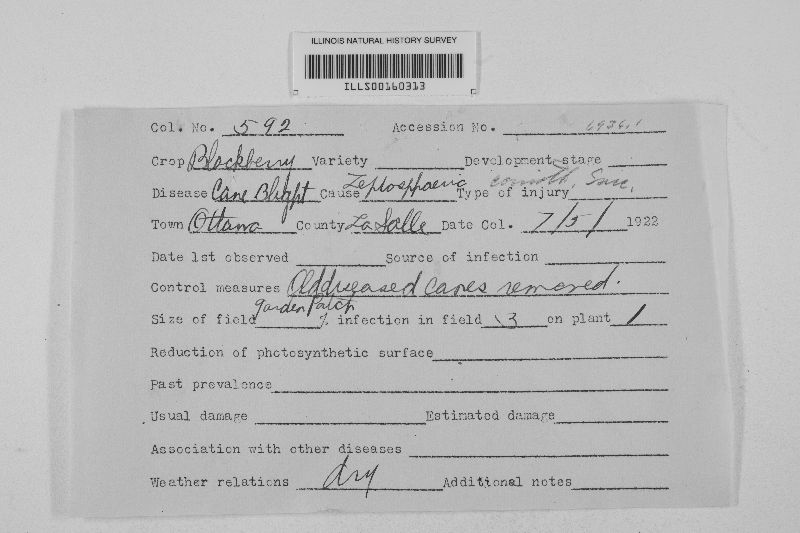 ILLINOIS NATURAL HISTORY SURVEY
ILLS00160313
Col. No. 592 Accession No. 6936.1
Crop Blackberry Variety Development stage
Disease Cane Blight Cause Leptosphaeria Type of injury Sacc.
Town Ottawa County La Salle Date Col. 7/5/ 1922
Date 1st observed Source of infection
Control measures Old diseased canes removed.
Size of field garden Patch % infection in field 3 on plant 1
Reduction of photosynthetic surface
Past prevalence
Usual damage Estimated damage
Association with other diseases
Weather relations dry Additional notes